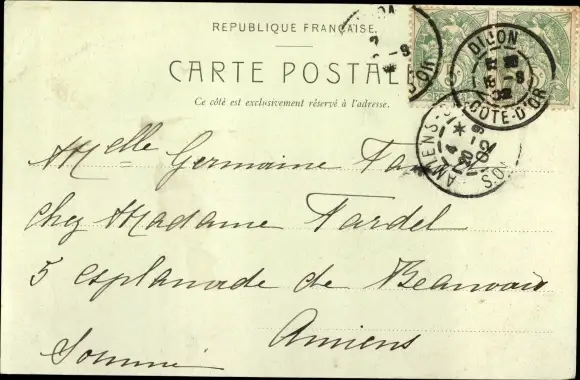 RÉPUBLIQUE FRANÇAISE.
CARTE POSTALE
Ce côté est exclusivement réservé à l'adresse.
DIJON
8 -9
02
COTE-D'OR
AMIENS
4 *
20 -9
02
D'OR
Melle Germaine
chez Madame Tardel
5 esplanade de Beauvais
Amiens
Somme